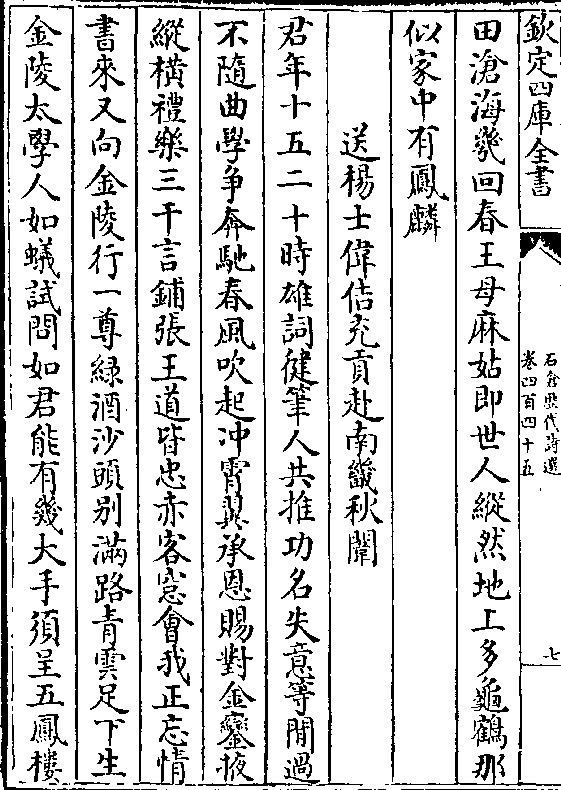 欽定四庫全書
石倉歷代詩選
卷四百四十五
七
田滄海幾回春王母麻姑即世人縱然地上多龜鶴那
似家中有鳳麟
送楊士偉佶充貢赴南畿秋闈
君年十五二十時雄詞健筆人共推功名失意等閒過
不隨曲學争奔馳春風吹起冲霄翼承恩賜對金鑾掖
縱橫禮樂三千言鋪張王道皆忠赤客窓會我正忘情
書來又向金陵行一尊綠酒沙頭别滿路青雲足下生
金陵太學人如蟻試問如君能有幾大手須呈五鳳樓